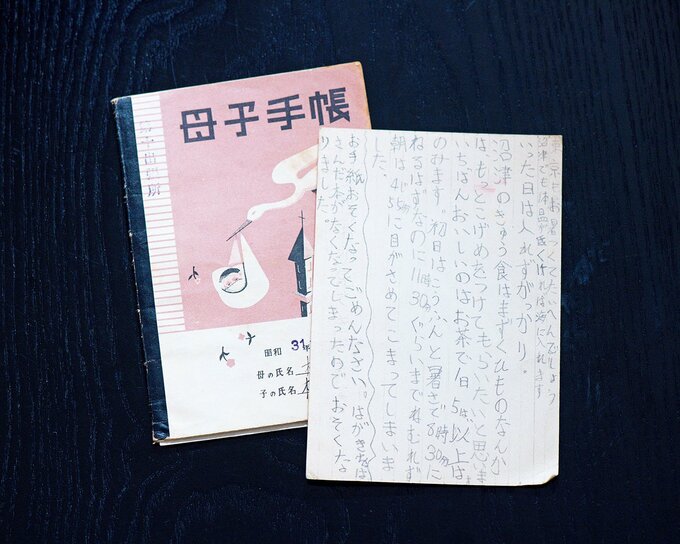 母子手帳
昭和 31年
母の氏名
子の氏名
暑くてたいへんでしょう
沼津でも体温が低くければ海に入れます
いった日は入れずがっかり。
沼津のきゅう食はまずくひものなんか
はもっとこげめをつけてもらいたいと思いま
いちばんおいしいのはお茶で1日5はい以上は
のみます。初日はこうふんと暑さで8時30分に
ねるはずなのに11時30分ぐらいまでねむれず
朝は4時45分に目がさめてこまってしまいま
した。
お手紙おそくなってごめんなさい。はがきをは
さんだ本がなくなってしまったのでおそくな
りました。